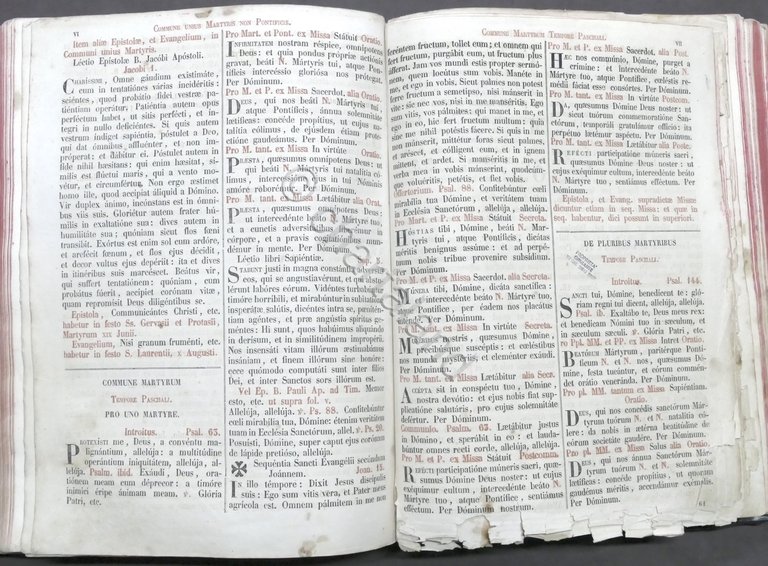 VI
COMMUNE UNIUS MARTYRIS NON PONTIFICIS.
Item aliæ Epistolæ, et Evangelium, in
Communi unius Martyris.
Léctio Epístolæ B. Jacóbi Apóstoli.
Jacobi 1.
CHaríssimi, Omne gáudium existimáte,
cum in tentatiónes várias incidéritis:
sciéntes, quod probátio fídei vestræ pa-
tiéntiam operátur; Patiéntia autem opus
perféctum habet, ut sitis perfécti, et ín-
tegri in nullo deficiéntes. Si quis autem
vestrum índiget sapiéntia, póstulet a Deo,
qui dat ómnibus affluénter, et non im-
próperat: et dábitur ei. Póstulet autem in
fide nihil hæsitans: qui enim hæsitat, sí-
milis est flúctui maris, qui a vento mo-
vétur, et circumfértur. Non ergo æstimet
homo ille, quod accípiat áliquid a Dómino.
Vir duplex ánimo, incónstans est in ómni-
bus viis suis. Gloriétur autem frater hú-
milis in exaltatióne sua: dives autem in
humilitáte sua; quóniam sicut flos fœni
transíbit. Exórtus est enim sol cum ardóre,
et arefécit fœnum, et flos ejus décidit,
et decor vultus ejus depériit: ita et dives
in itinéribus suis marcéscet. Beátus vir,
qui suffert tentatiónem: quóniam, cum
probátus fúerit, accípiet corónam vitæ,
quam repromísit Deus diligéntibus se.
Epistola, Communicántes Christi, etc.
habetur in festo Ss. Gervasii et Protasii,
Martyrum XIX Junii.
Evangelium, Nisi granum fruménti, etc.
habetur in festo S. Laurentii, X Augusti.
COMMUNE MARTYRUM
TEMPORE PASCHALI.
PRO UNO MARTYRE.
Introitus. Psal. 63.
PRotexísti me, Deus, a convéntu ma-
lignántium, allelúja: a multitúdine
operántium iniquitátem, allelúja, al-
lelúja. Psalm. ibid. Exáudi, Deus, ora-
tiónem meam cum déprecor: a timóre
inimíci éripe ánimam meam. ℣. Glória
Patri, etc.
Pro Mart. et Pont. ex Missa Státuit Oratio.
INfirmitátem nostram réspice, omnípotens
Deus: et quia pondus própriæ actiónis
gravat, beáti N. Mártyris tui, atque Pon-
tíficis intercéssio gloriósa nos prótegat.
Per Dóminum.
Pro M. et P. ex Missa Sacerdot. alia Oratio.
DEus, qui nos beáti N. Mártyris tui,
atque Pontíficis, ánnua solemnitáte
lætíficas: concéde propítius, ut cujus na-
talítia cólimus, de ejúsdem étiam prote-
ctióne gaudeámus. Per Dóminum.
Pro M. tant. ex Missa In virtúte Oratio.
PRæsta, quæsumus omnípotens Deus: ut
qui beáti N. Mártyris tui natalítia có-
limus, intercessióne ejus in tui Nóminis
amóre roborémur. Per Dóminum.
Pro M. tant. ex Missa Lætábitur alia Orat.
PRæsta, quæsumus omnípotens Deus:
ut intercedénte beáto N. Mártyre tuo,
et a cunctis adversitátibus liberémur in
córpore, et a pravis cogitatiónibus mun-
démur in mente. Per Dóminum.
Léctio libri Sapiéntiæ. 5.
STabunt justi in magna constántia advér-
sus eos, qui se angustiavérunt, et qui abstu-
lérunt labóres eórum. Vidéntes turbabúntur
timóre horríbili, et mirabúntur in subitatióne
insperátæ salútis, dicéntes intra se, pœnitén-
tiam agéntes, et præ angústia spíritus ge-
méntes: Hi sunt, quos habúimus aliquándo
in derísum, et in similitúdinem impropérii.
Nos insensáti vitam illórum æstimabámus
insániam, et finem illórum sine honóre:
ecce quómodo computáti sunt inter fílios
Dei, et inter Sanctos sors illórum est.
Vel Ep. B. Pauli Ap. ad Tim. Memor
esto, etc. ut supra fol. v.
Allelúja, allelúja. ℣. Ps. 88. Confitebúntur
cœli mirabília tua, Dómine: étenim veritátem
tuam in Ecclésia Sanctórum, allel. ℣. Ps. 20.
Posuísti, Dómine, super caput ejus corónam
de lápide pretióso, allelúja.
✠ Sequéntia Sancti Evangélii secúndum
Joánnem. Joan. 15.
IN illo témpore: Dixit Jesus discípulis
suis: Ego sum vitis vera, et Pater meus
agrícola est. Omnem pálmitem in me non
COMMUNE MARTYRUM TEMPORE PASCHALI.
VII
feréntem fructum, tollet eum; et omnem qui
fert fructum, purgábit eum, ut fructum plus
áfferat. Jam vos mundi estis propter sermó-
nem, quem locútus sum vobis. Manéte in
me, et ego in vobis. Sicut palmes non potest
ferre fructum a semetípso, nisi mánserit in
vite: sic nec vos, nisi in me manséritis. Ego
sum vitis, vos pálmites: qui manet in me, et
ego in eo, hic fert fructum multum: quia
sine me nihil potéstis fácere. Si quis in me
non mánserit, mittétur foras sicut palmes,
et aréscet, et cólligent eum, et in ignem
mittent, et ardet. Si manséritis in me, et
verba mea in vobis mánserint, quodcúmque
voluéritis, petétis, et fiet vobis.
Offertorium. Psal. 88. Confitebúntur cœli
mirabília tua, Dómine, et veritátem tuam
in Ecclésia Sanctórum, allelúja, allelúja.
Pro Mart. et P. ex Missa Státuit Secreta.
HÓstias tibi, Dómine, beáti N. Már-
tyris tui, atque Pontíficis, dicátas
méritis benígnus assúme: et ad perpé-
tuum nobis tríbue proveníre subsídium.
Per Dóminum.
Pro M. et P. ex Missa Sacerdot. alia Secreta.
MÚnera tibi, Dómine, dicáta sanctífica:
et intercedénte beáto N. Mártyre tuo,
atque Pontífice, per éadem nos placátus
inténde. Per Dóminum.
Pro M. tant. ex Missa In virtúte Secreta.
MUnéribus nostris, quæsumus Dómine,
precibúsque suscéptis: et cœléstibus
nos munda mystériis, et cleménter exáudi.
Per Dóminum.
Pro M. tant. ex Missa Lætábitur alia Secr.
ACcépta sit in conspéctu tuo, Dómine
nostra devótio: et ejus nobis fiat sup-
plicatióne salutáris, pro cujus solemnitáte
defértur. Per Dóminum.
Communio. Psalm. 63. Lætábitur justus
in Dómino, et sperábit in eo: et laudá-
buntur omnes recti corde, allelúja, allelúja.
Pro M. et P. ex Missa Státuit Postcomm.
REfécti participatióne múneris sacri, quæ-
sumus Dómine Deus noster: ut cujus
exéquimur cultum, intercedénte beáto N.
Mártyre tuo, atque Pontífice, sentiámus
efféctum. Per Dóminum nostrum.
Pro M. et P. ex Missa Sacerdot. alia Post.
HÆc nos commúnio, Dómine, purget a
crímine: et intercedénte beáto N.
Mártyre tuo, atque Pontífice, cœléstis re-
médii fáciat esse consórtes. Per Dóminum.
Pro M. tant. ex Missa In virtúte Postcom.
DA, quæsumus Dómine Deus noster: ut
sicut tuórum commemoratióne San-
ctórum, temporáli gratulámur offício: ita
perpétuo lætémur aspéctu. Per Dóminum.
Pro M. tant. ex Missa Lætábitur alia Post.
REfécti participatióne múneris sacri,
quæsumus Dómine Deus noster: ut
cujus exéquimur cultum, intercedénte beáto
N. Mártyre tuo, sentiámus efféctum. Per
Dóminum.
Epistola, et Evang. supradictæ Missæ
dicuntur etiam in seq. Missa: et quæ in
seq. habentur, dici possunt in superiori.
DE PLURIBUS MARTYRIBUS
TEMPORE PASCHALI.
Introitus. Psal. 144.
SAncti tui, Dómine, benedícent te: gló-
riam regni tui dicent, allelúja, allelúja.
Psal. ib. Exaltábo te, Deus meus rex:
et benedícam Nómini tuo in sæculum, et
in sæculum sæculi. ℣. Glória Patri, etc.
Pro Ppl. MM. et PP. ex Missa Intret Oratio.
BEatórum Mártyrum, paritérque Pontífi-
cum N. et N. nos, quæsumus Dó-
mine, festa tueántur, et eórum commén-
det orátio veneránda. Per Dóminum.
Pro pl. MM. tantum ex Missa Sapiéntiam
Oratio.
DEus, qui nos concédis sanctórum Már-
tyrum tuórum N. et N. natalítia có-
lere: da nobis in ætérna beatitúdine de
eórum societáte gaudére. Per Dóminum.
Pro pl. MM. ex Missa Salus alia Oratio.
DEus, qui nos ánnua Sanctórum Mártyrum
tuórum N. et N. solemnitáte
lætíficas: concéde propítius, ut quorum
gaudémus méritis, accendámur exémplis.
Per Dóminum.
61